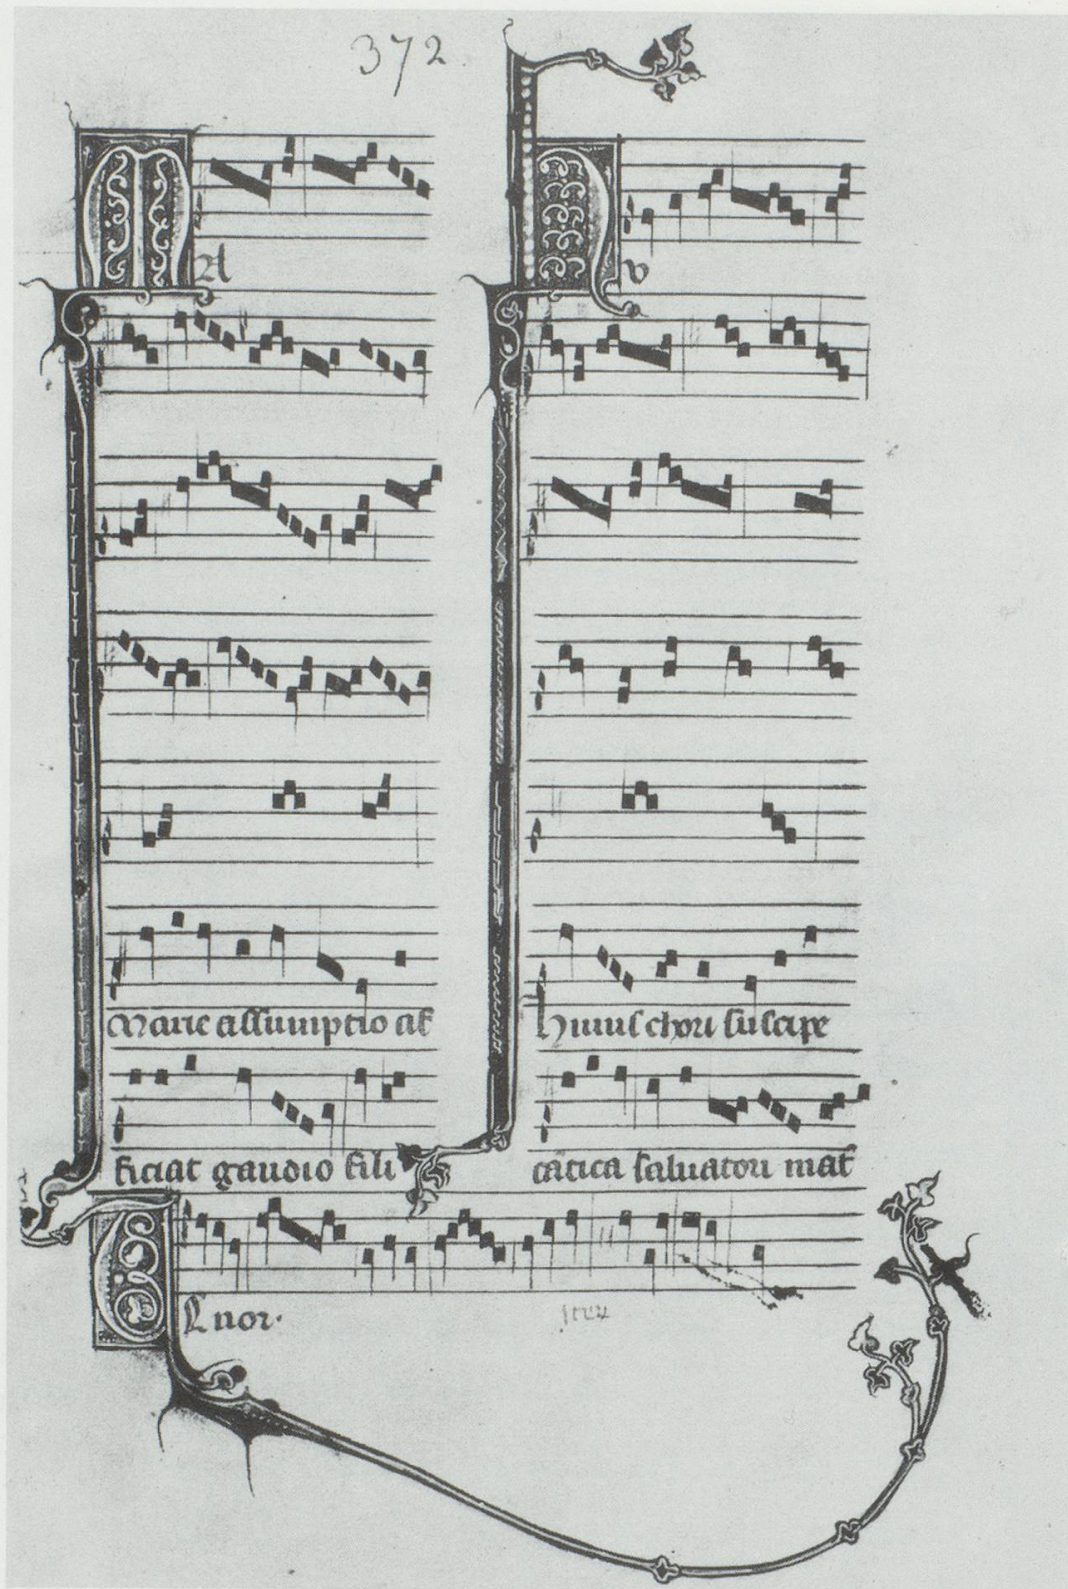 372
MA
Marie assumptio af
ficiat gaudio fili
Hu
huius chori suscipe
cātica saluatori mat̄
Fluor.